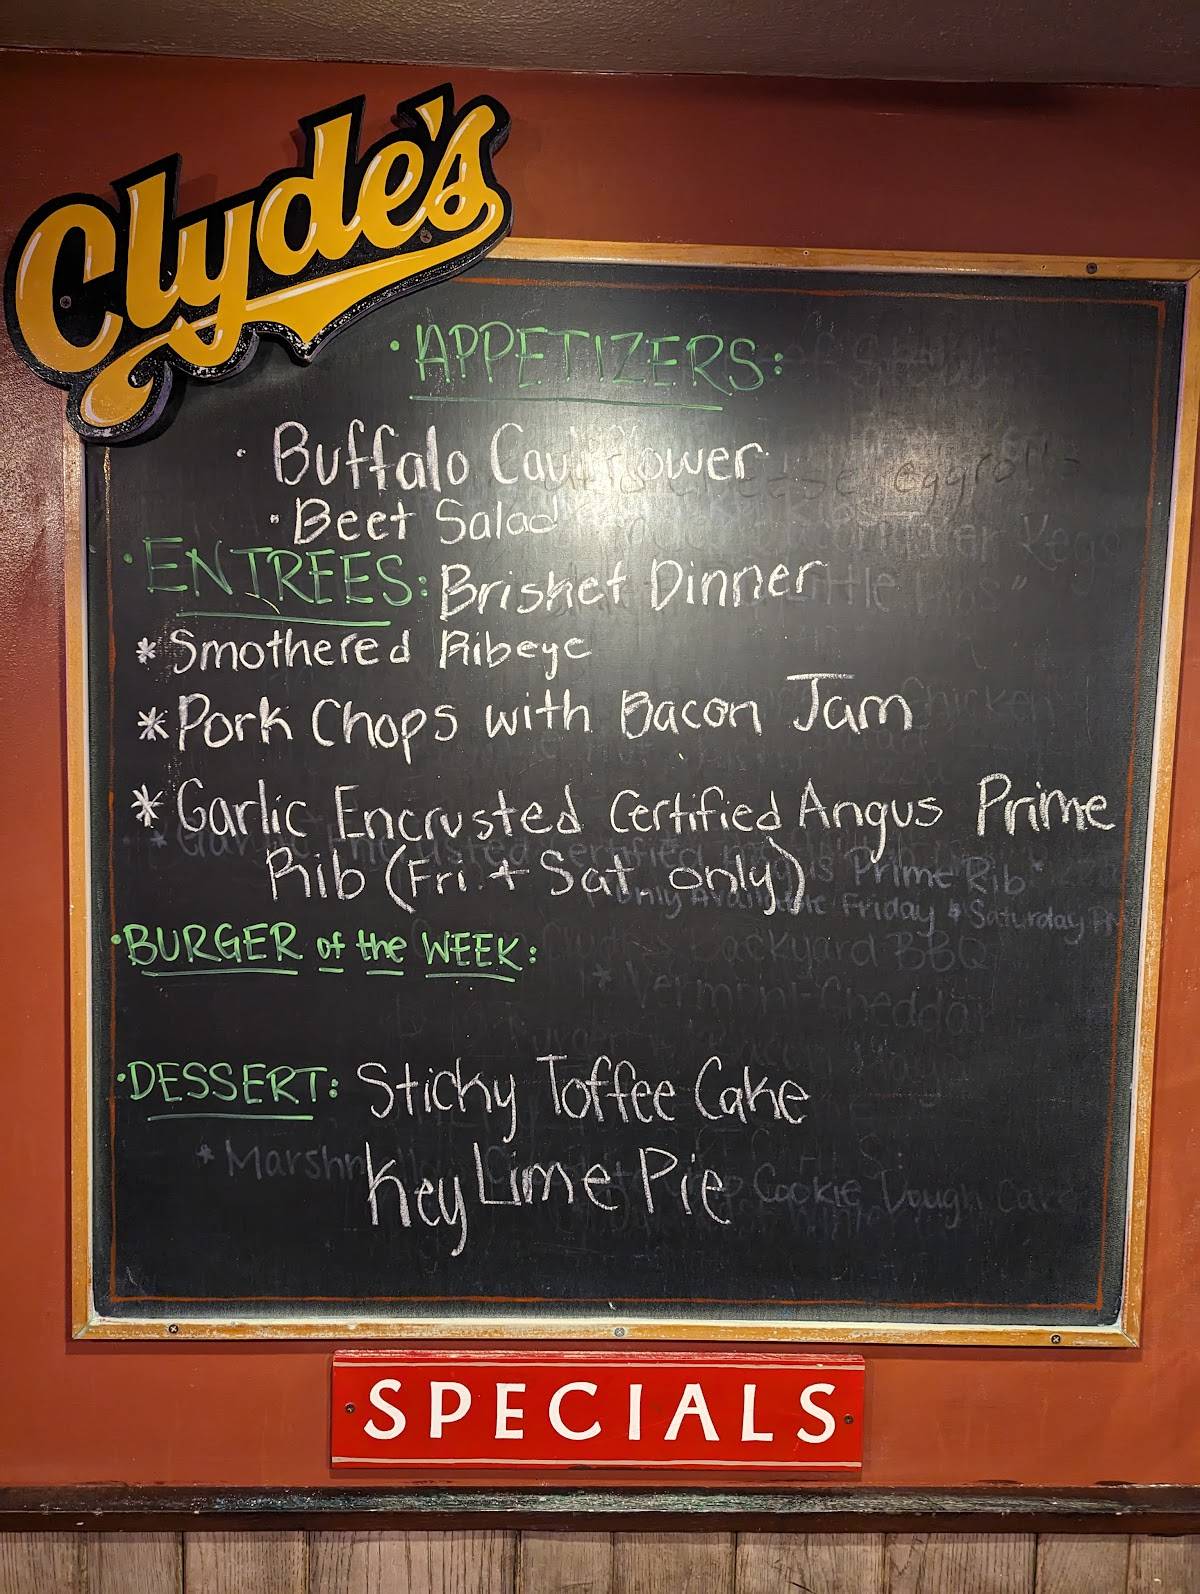 Clyde's
• APPETIZERS:
• Buffalo Cauliflower
• Beet Salad
• ENTREES: Brisket Dinner
* Smothered Ribeye
* Pork Chops with Bacon Jam
* Garlic Encrusted Certified Angus Prime
Rib (Fri. + Sat. only)
• BURGER of the WEEK:
• DESSERT: Sticky Toffee Cake
Key Lime Pie
SPECIALS